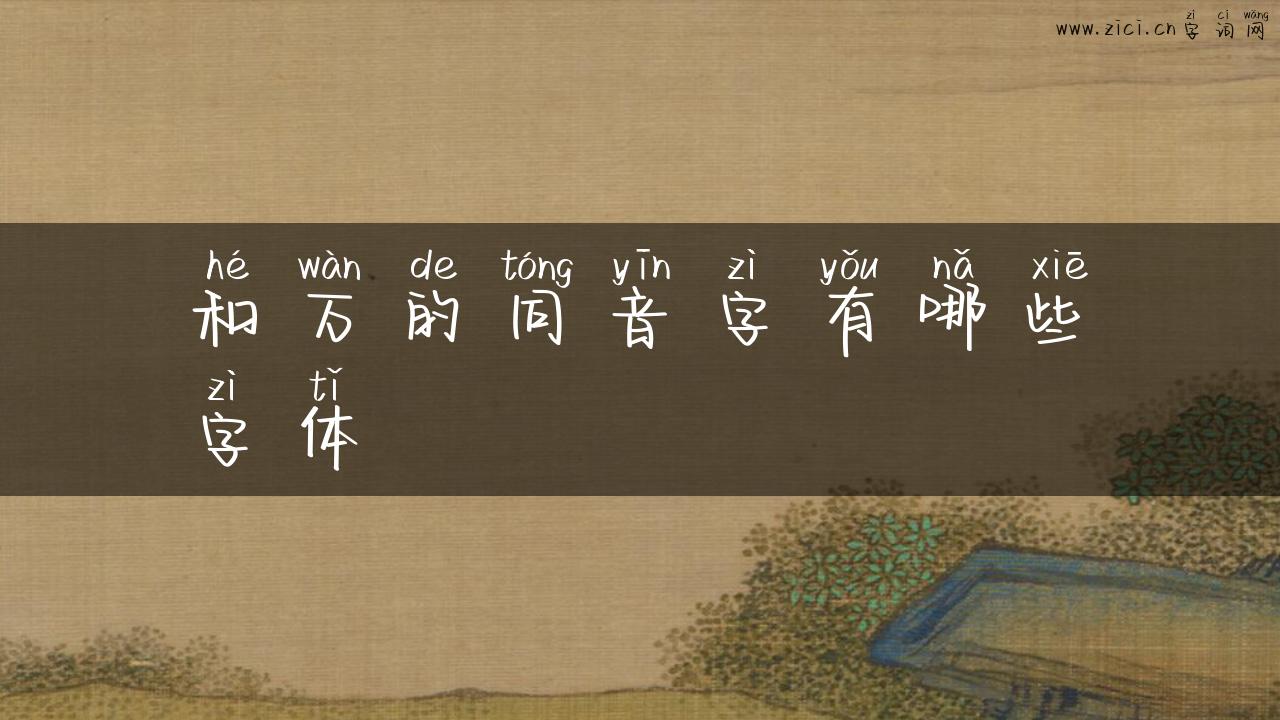 zì cí wǎng
www.zici.cn 字 词 网
hé wàn de tóng yīn zì yǒu nǎ xiē
和 万 的 同 音 字 有 哪 些
zì tǐ
字 体